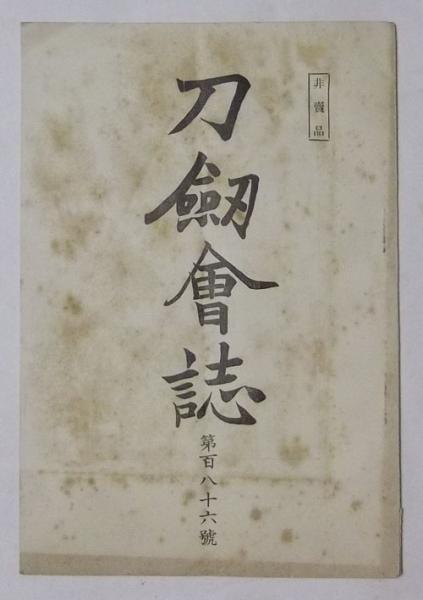 非賣品
刀劔會誌
第百八十六號